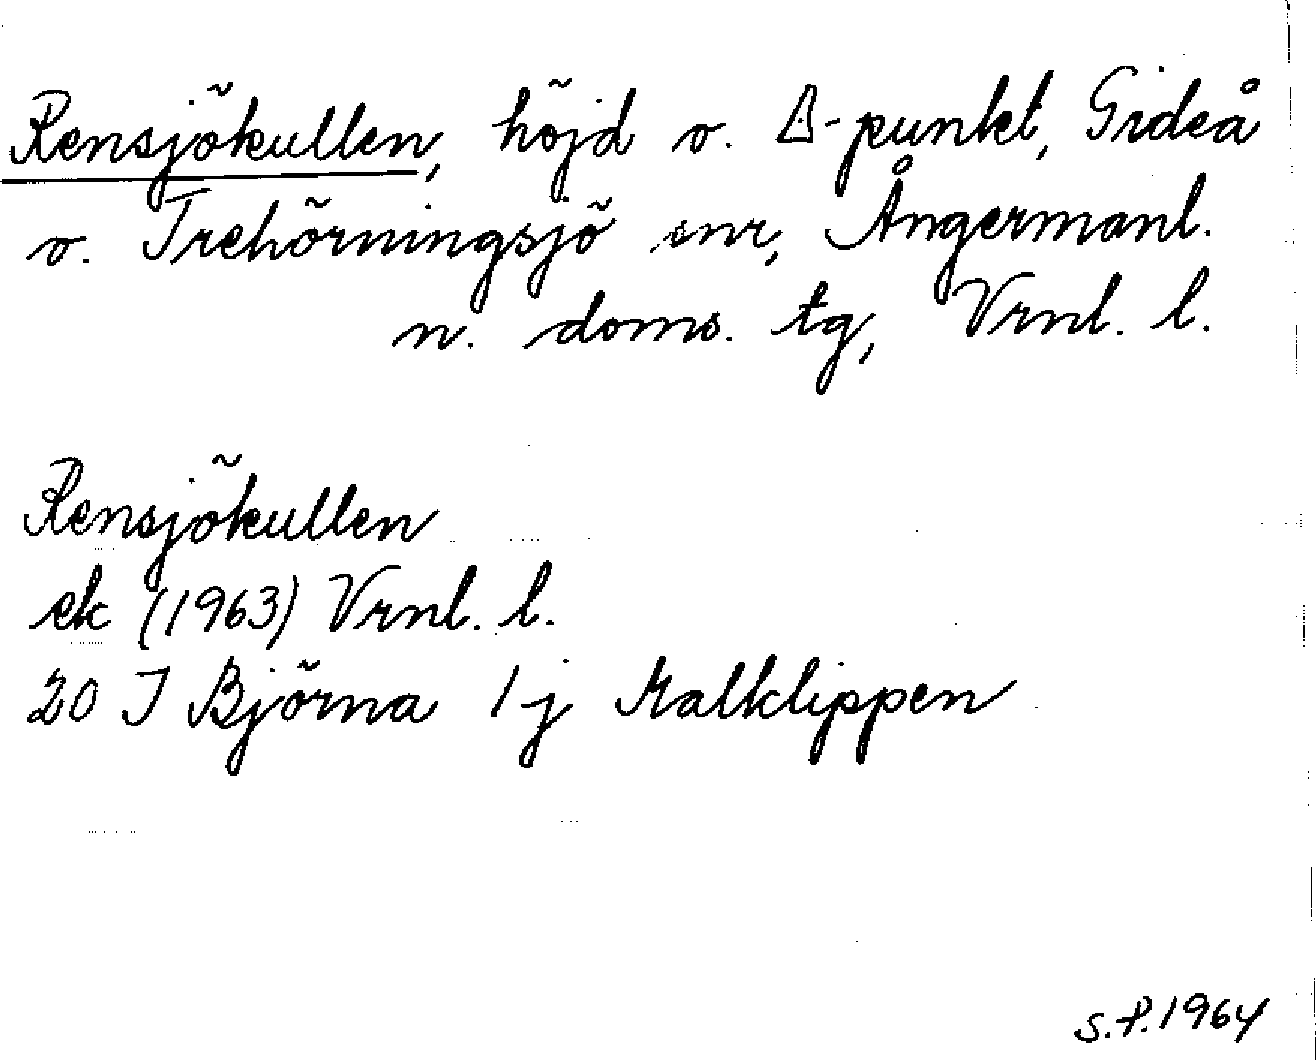 Rensjökullen, höjd o. ∆-punkt, Gideå
o. Trehörningsjö snr, Ångermanl.
n. doms. tg, Vrnl. l.
Rensjökullen
ek (1963) Vrnl. l.
20 I Björna 1j Kalklippen
S.P. 1964